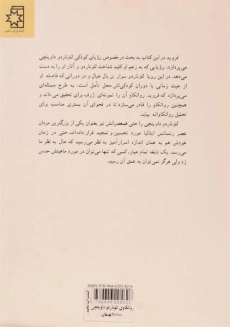 فروید در این کتاب به بحث در خصوص رؤیای کودکی لئوناردو داوینچی
می‌پردازد. رؤیایی که به زعم او کلید شناخت لئوناردو و آثار او را به دست
می‌دهد. در این رویا لئوناردو سوار بر بال خیال و در دورانی که فاصله او
از حیث زمانی با دوران کودکی‌اش محل تأمل است، به طرح مسئله‌ای
می‌پردازد که فروید، روانکاو آن را نمونه‌ای ژرف برای تحقیق می‌داند و
همچنین روانکاوان را قادر می‌سازد تا در فحوای آن بستری مناسب برای
تحلیل روانکاوانه بیابند.
لئوناردو داوینچی را حتی همعصرانش نیز بعنوان یکی از بزرگترین مردان
عصر رنسانس ایتالیا مورد تحسین و تمجید قرار داده‌اند. حتی در زمان
خودش هم به همان اندازه اسرارآمیز به نظر می‌رسید که حال به نظر ما
می‌رسد. یک نابغه تمام عیار، کسی که تنها می‌توان در مورد ماهیتش حدس
زد ولی هرگز نمی‌توان به عمق آن رسید.
روانکاوی لئوناردو داوینچی
تومان